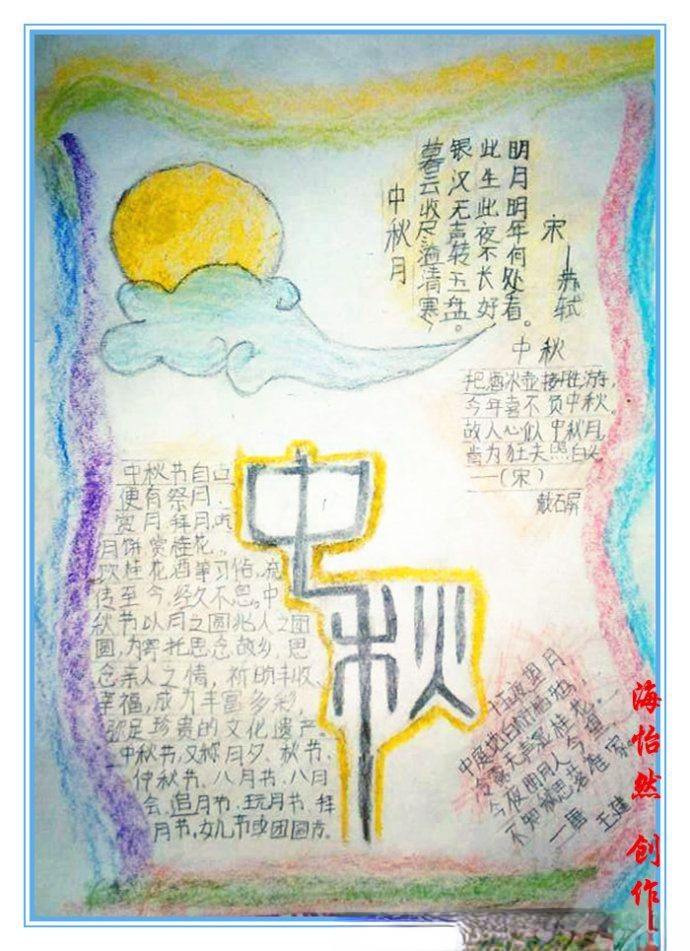 中秋月
暮云收尽溢清寒，
银汉无声转玉盘。
此生此夜不长好，
明月明年何处看。
宋—苏轼
中秋
把酒冰壶接胜游，
今年喜不负中秋。
故人心似中秋月，
肯为狂夫照白头
——（宋）
戴石屏
中秋
中秋节自古
便有祭月、
赏月、拜月、吃
月饼、赏桂花、
饮桂花酒等习俗，流
传至今，经久不息。中
秋节以月之圆兆人之团
圆，为寄托思念故乡，思
念亲人之情，祈盼丰收、
幸福，成为丰富多彩，
弥足珍贵的文化遗产。
中秋节，又称月夕、秋节、
仲秋节、八月节、八月
会、追月节、玩月节、拜
月节、女儿节或团圆节。
十五夜望月
中庭地白树栖鸦，
冷露无声湿桂花。
今夜月明人尽望，
不知秋思落谁家。
—唐 王建
海怡然 创作